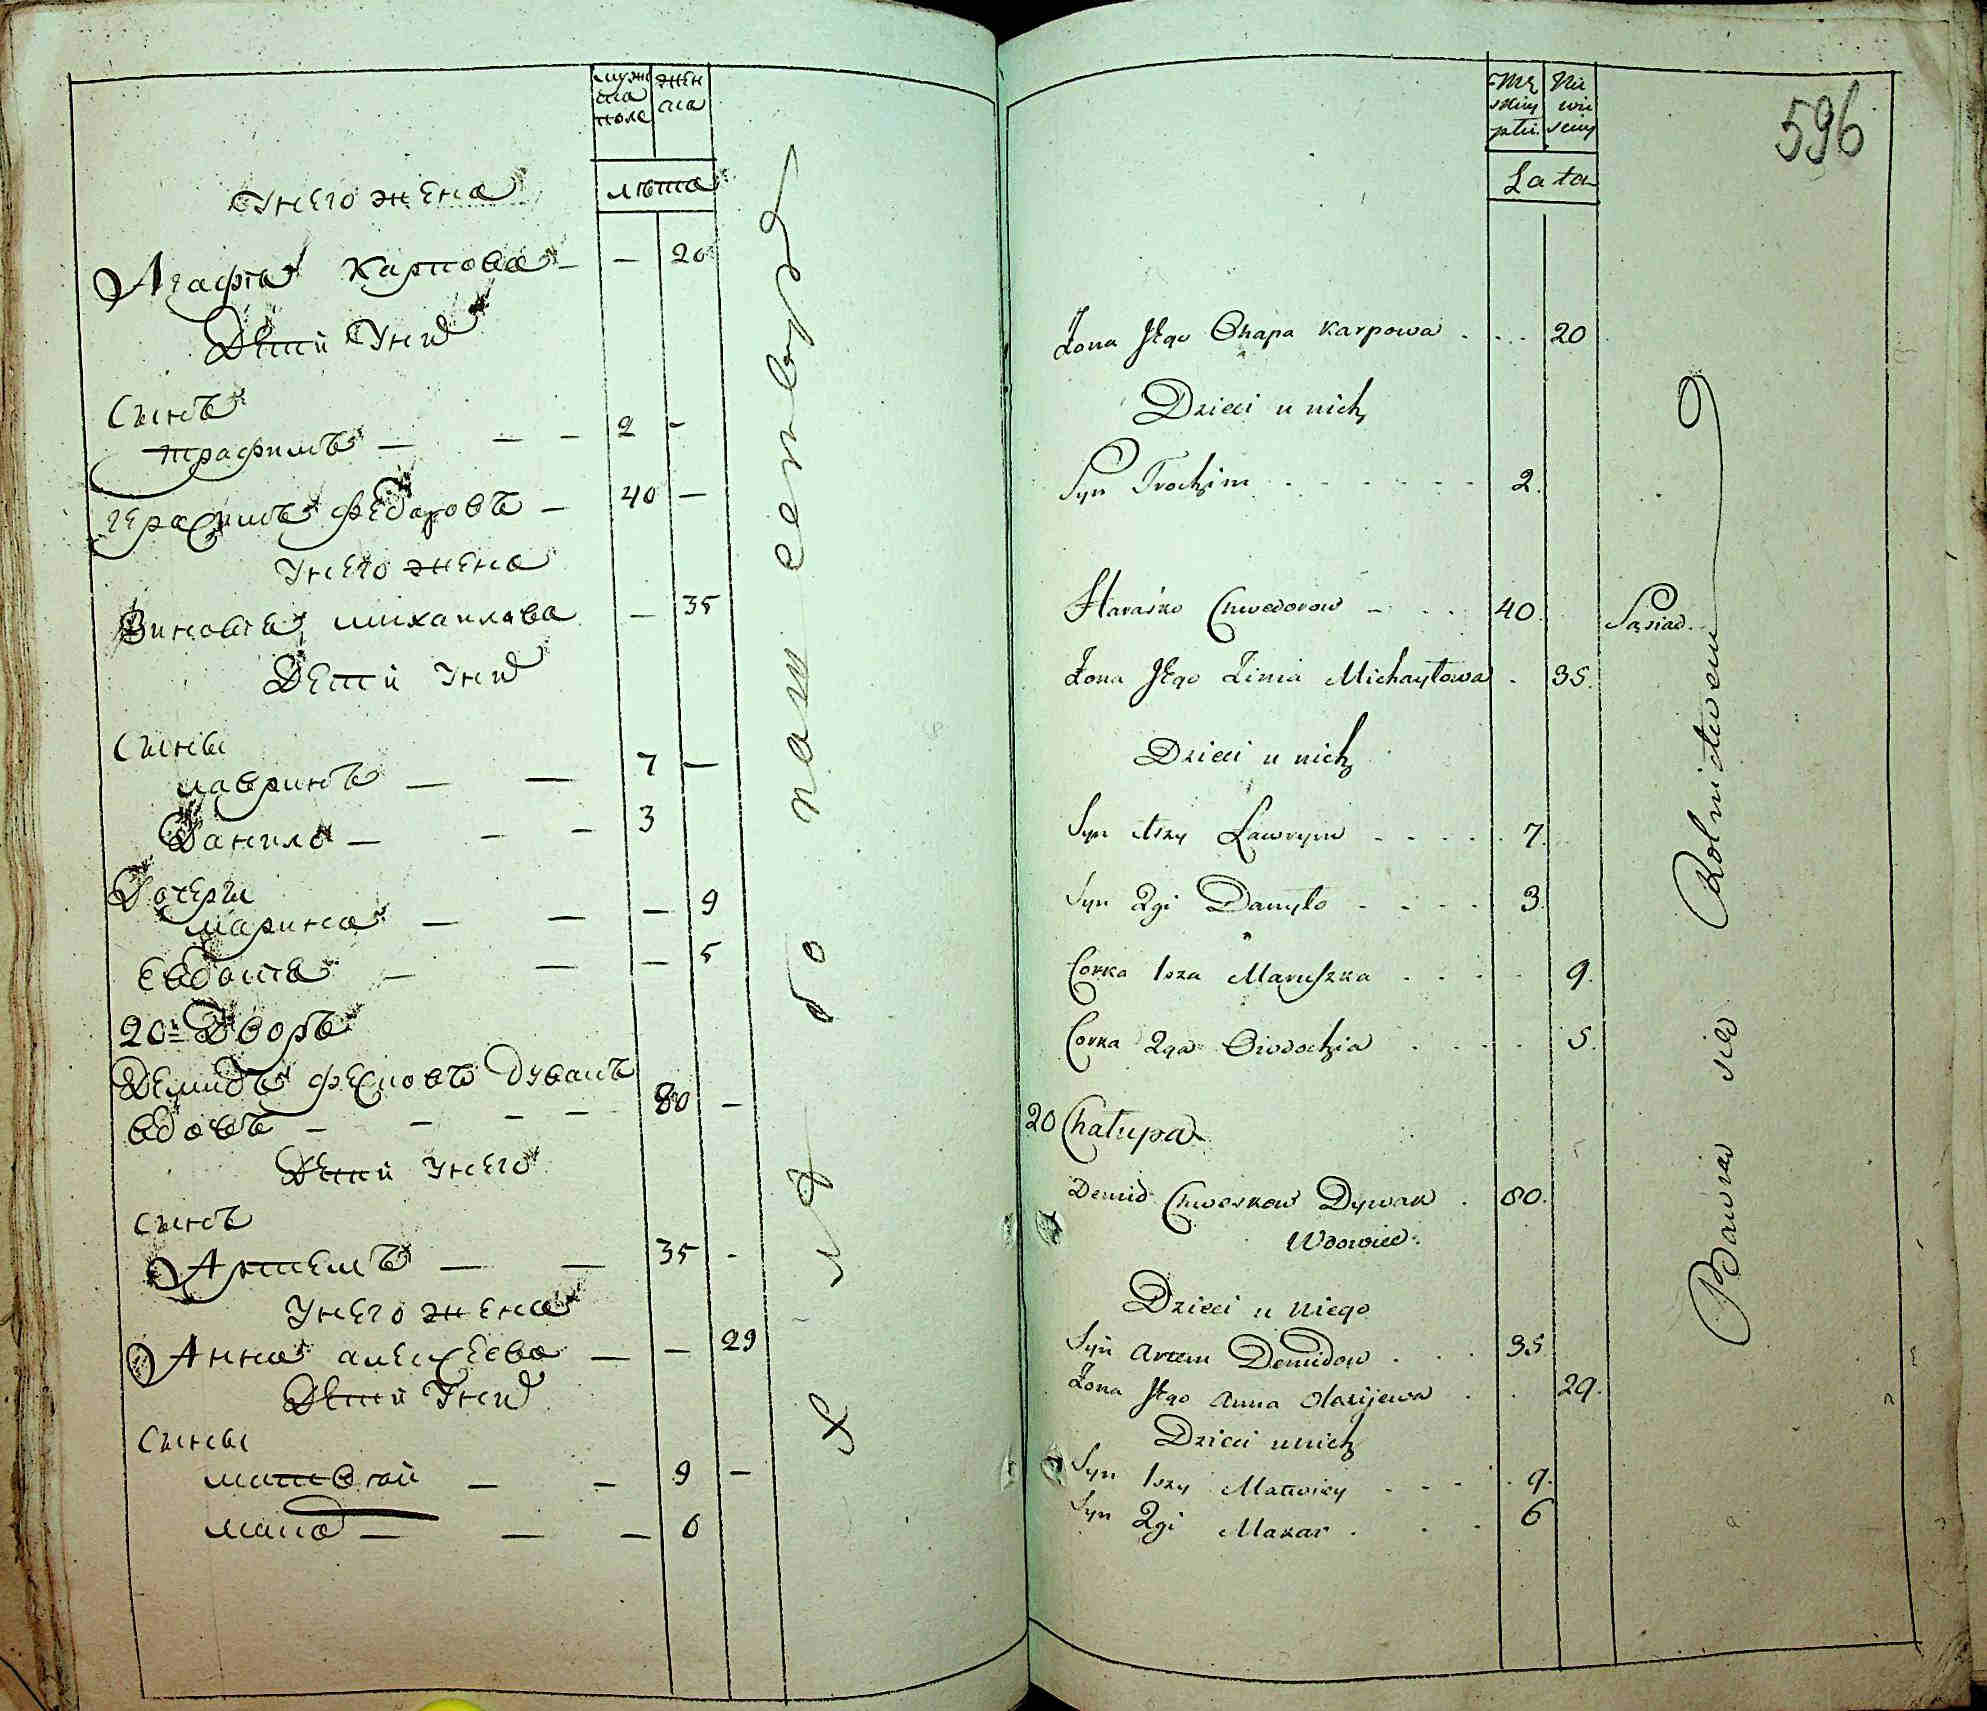 мужеска поле
женска
лета
У него жена
Агафія Карпова — — 20
Дети У них
Сынъ
трафимъ — — — 2 —
герасимъ федаровъ — 40 —
У него жена
Зиновія михаилова — 35
Дети У них
Сыны
лавринъ — — 7 —
Данило — — — 3
Дочери
марина — — — 9
евдоктя — — — 5
20й Дворъ
Демидъ фесковъ дывакъ
вдовъ — — — — 80 —
Дети У него
сынъ
Артемъ — — 35 -
У него жена
Анна алексеева — — 29
Дети У них
Сыны
матвей — — 9 —
макар — — — 6
хлебопашествомъ
596
Męskiej płci
Niewiesciey
Lata
Żona Jego Ohapa Karpowa . . . . 20
Dzieci u nich
Syn Trochim - - - - - - - 2.
Haraśko Chwedorow - . . . 40. Sąsiad.
Żona Jego Zinia Michayłowa . 35.
Dzieci u nich
Syn 1szy Ławryn - - - - - 7.
Syn 2gi Danyło - - - - 3.
Corka 1sza Maruszka . . . . . 9.
Corka 2ga Owdochia . . . . . 5.
20 Chałupa
Demid Chweskow Dywak . 80.
Wdowiec.
Dzieci u niego
Syn Artem Demidow . . . 35
Żona Jego Anna Olexijewa . . 29.
Dzieci u nich
Syn 1szy Matwiey . . . . . 9.
Syn 2gi Makar . . . 6
Bawią się Rolnictwem